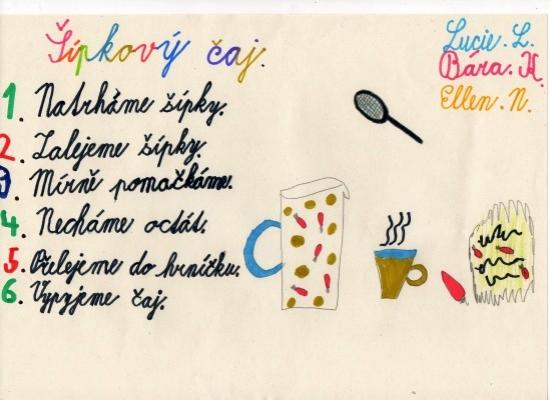 Šípkový čaj.
Lucie. L.
Bára. H.
Ellen. N.
1. Natrháme šípky.
2. Zalejeme šípky.
3. Mírně pomačkáme.
4. Necháme octát.
5. Přelejeme do hrníčku.
6. Vypyjeme čaj.